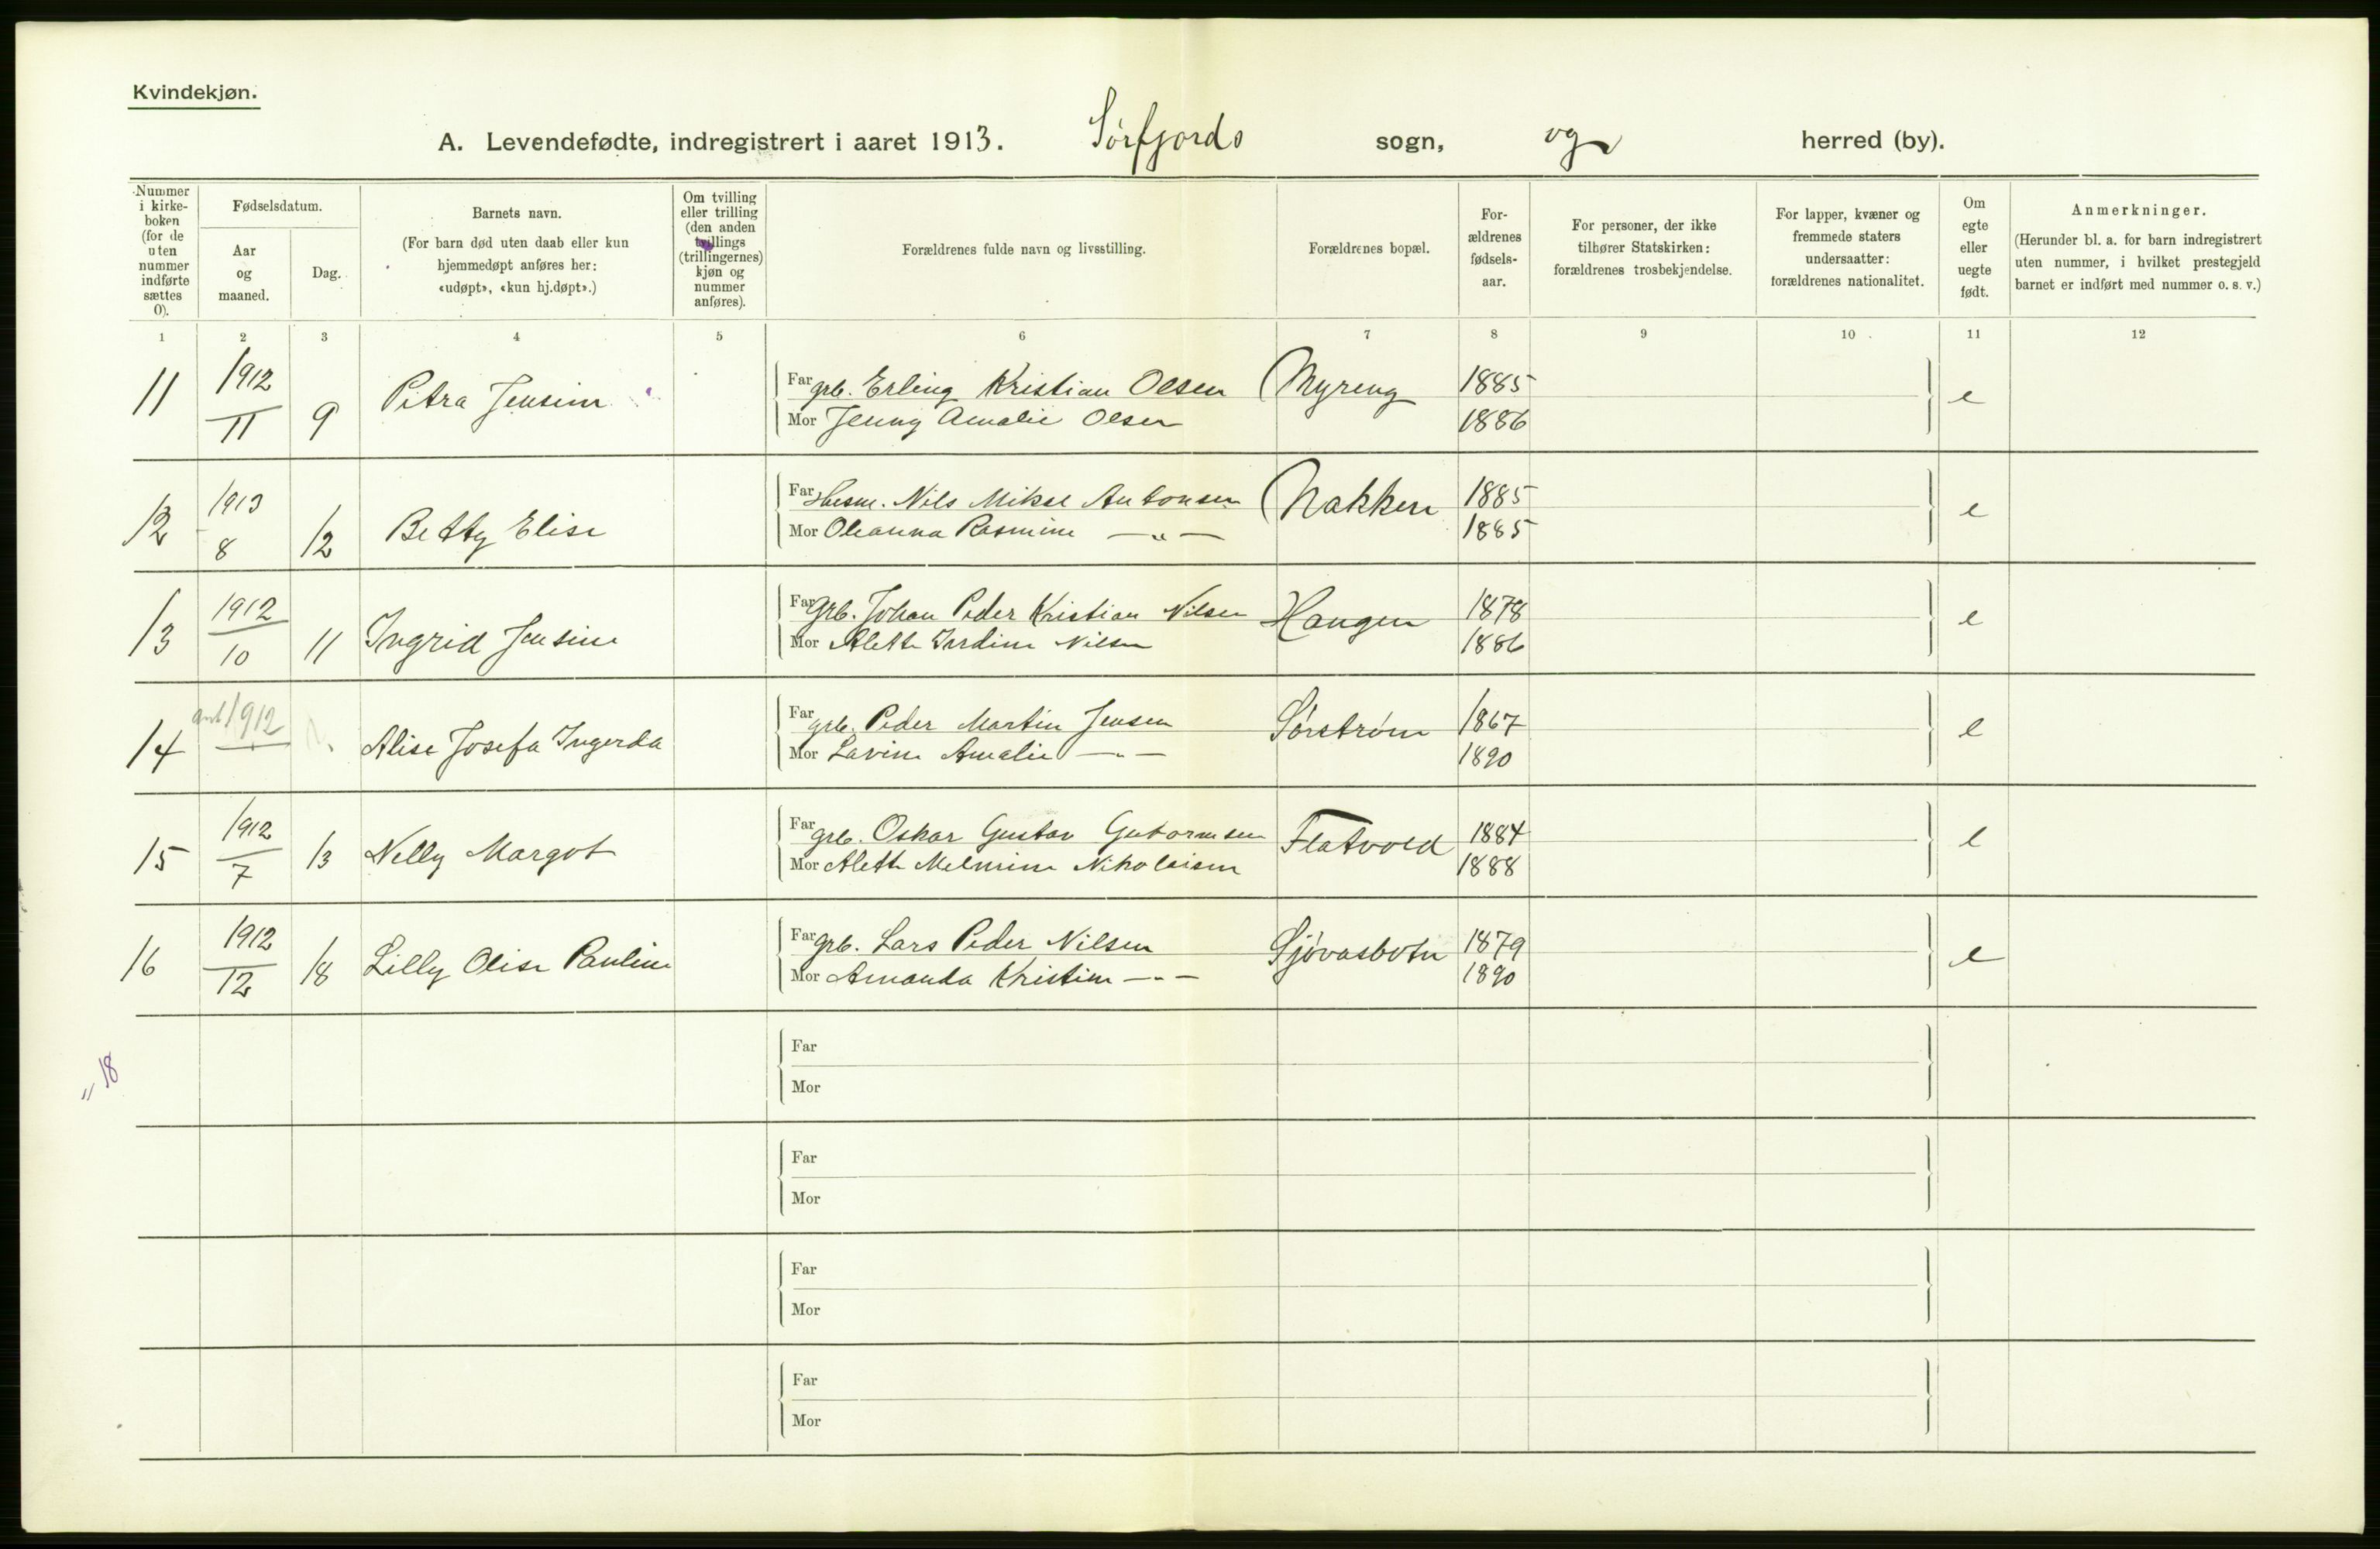 Kvindekjøn.
A. Levendefødte, indregistrert i aaret 1913. Sørfjords sogn, og herred (by).
Nummer i kirke-boken (for de uten nummer indførte sættes 0).
Fødselsdatum.
Aar og maaned.
Dag.
Barnets navn.
(For barn død uten daab eller kun hjemmedøpt anføres her: «udøpt», «kun hj.døpt».)
Om tvilling eller trilling (den anden tvillings (trillingernes) kjøn og nummer anføres).
Forældrenes fulde navn og livsstilling.
Forældrenes bopæl.
For-ældrenes fødsels-aar.
For personer, der ikke tilhører Statskirken: forældrenes trosbekjendelse.
For lapper, kvæner og fremmede staters undersaatter: forældrenes nationalitet.
Om egte eller uegte født.
Anmerkninger.
(Herunder bl. a. for barn indregistrert uten nummer, i hvilket prestegjeld barnet er indført med nummer o. s. v.)
1 2 3 4 5 6 7 8 9 10 11 12
11 1912 11 9 Petra Jensine Far grb. Erling Kristian Olsen Myreng 1885 e
Mor Jenny Amalie Olsen 1886
12 1913 8 12 Betty Elise Far Husm. Nils Mikal Antonsen Nakken 1885 e
Mor Oleanna Rasmine —"— 1885
13 1912 10 11 Ingrid Jensine Far Grb. Johan Peder Kristian Nilsen Haugen 1878 e
Mor Alette Nilsen 1886
14 1912 Alise Josefa Ingerda Far grb. Peder Martin Jensen Sørstrøm 1867 e
Mor Lavine Amalie —"— 1890
15 1912 7 13 Nelly Margot Far grb. Oskar Gustav Gutormsen Flatvold 1884 e
Mor Alette Melmine Nikolaisen 1888
16 1912 12 18 Lilly Olise Pauline Far grb. Lars Peder Nilsen Sjøvasbotn 1879 e
Mor Amanda Kristine —"— 1890
Far
" 18
Mor
Far
Mor
Far
Mor
Far
Mor